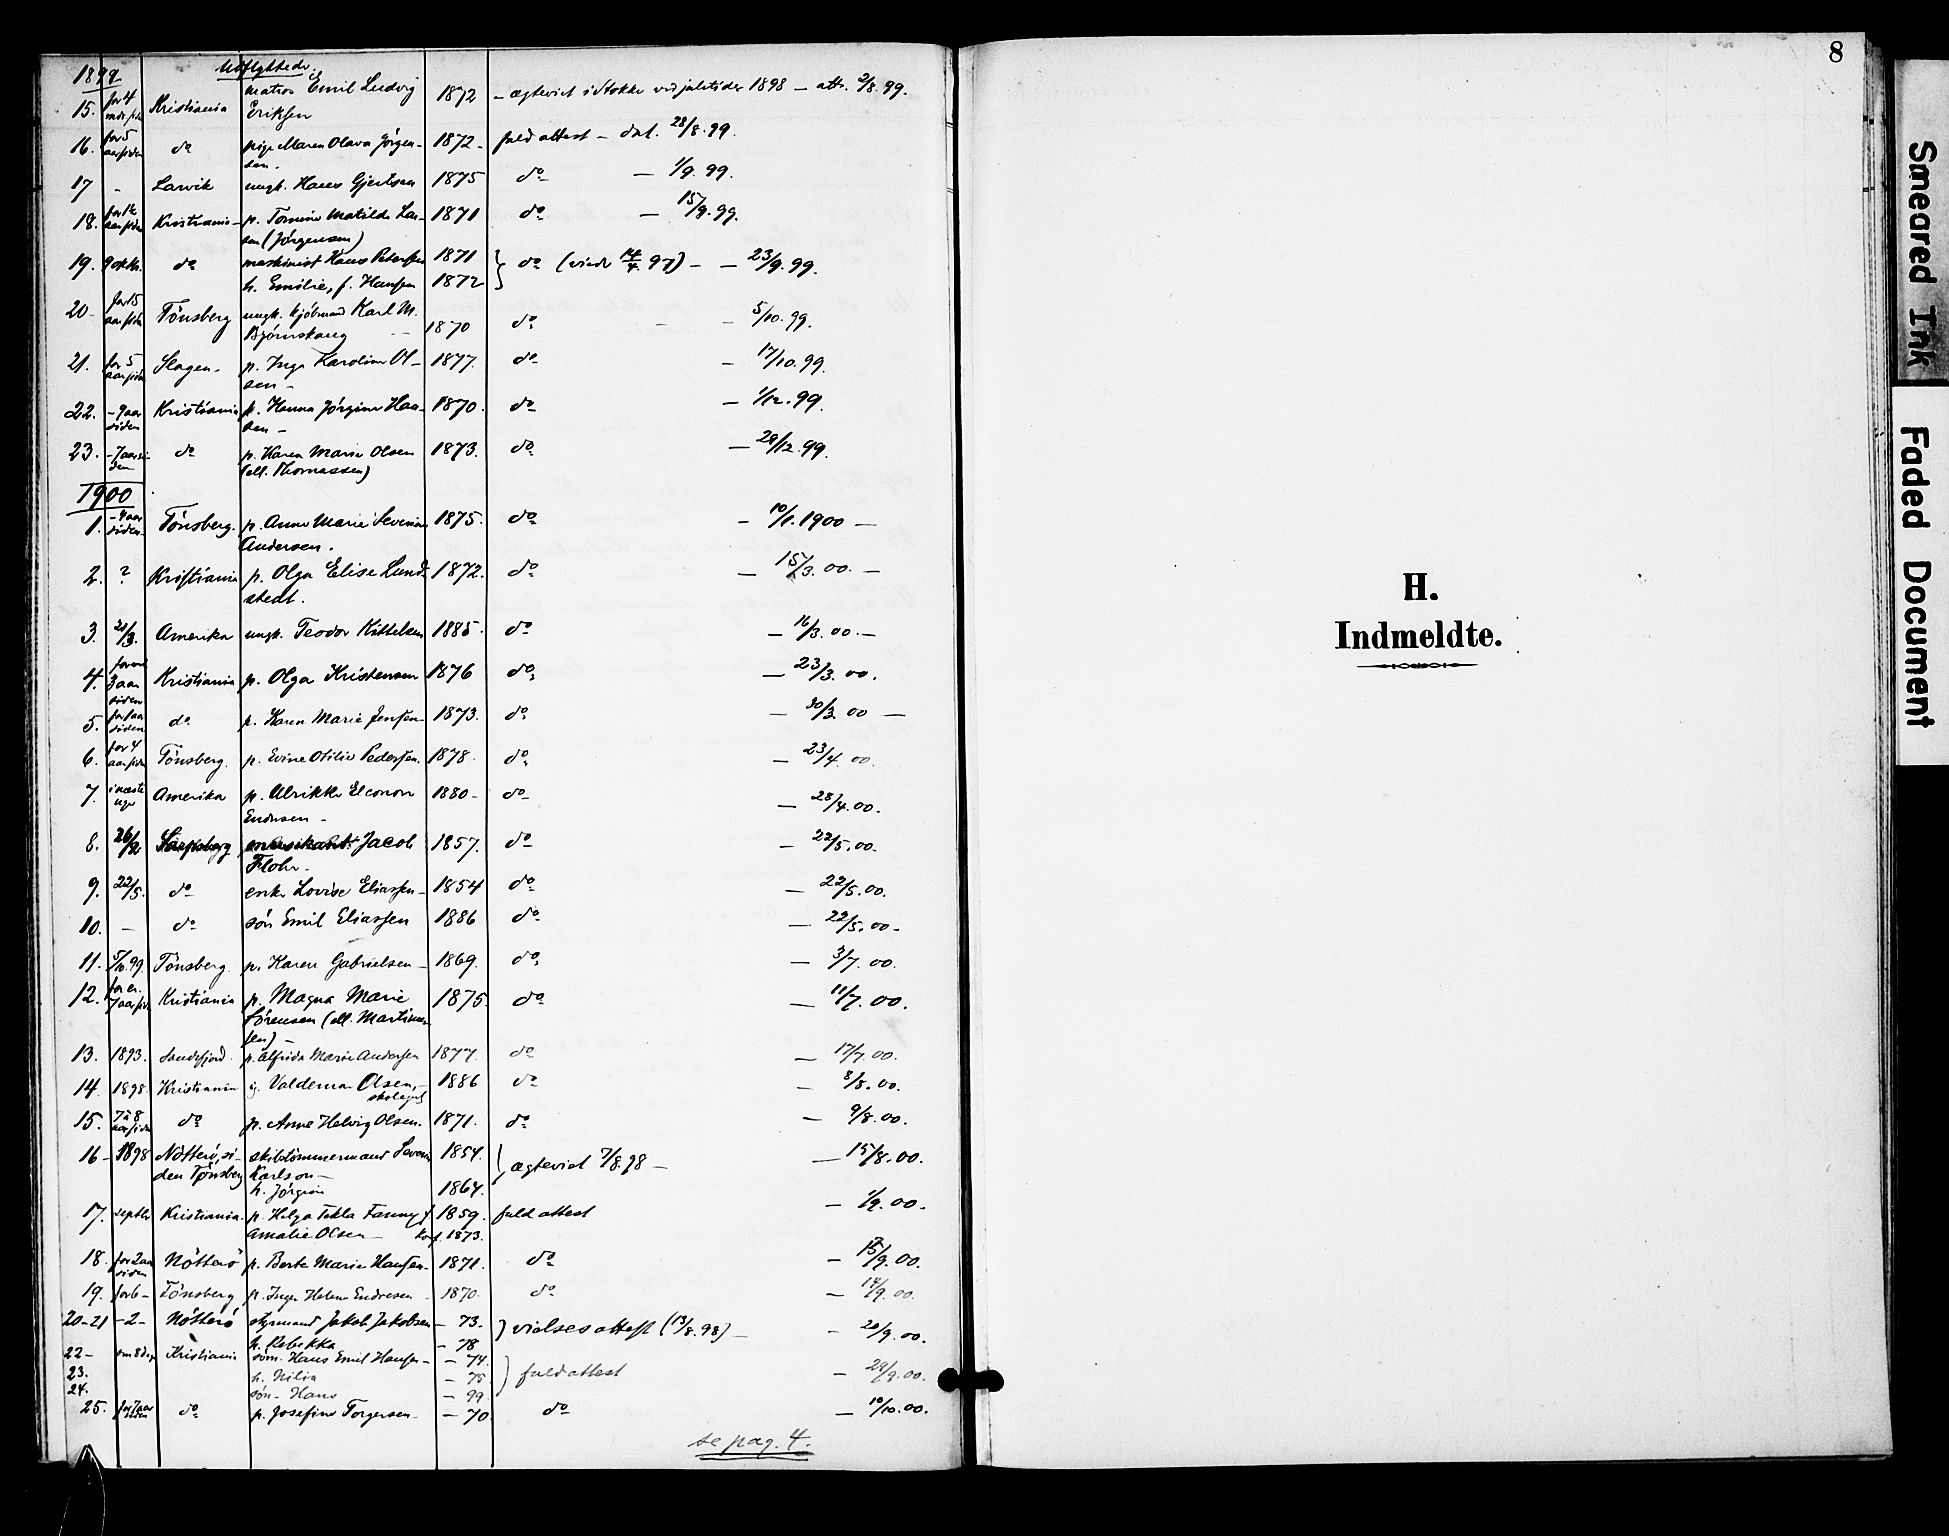 1899 Udflyttede.
15. for 4 mdr. sid. Kristiania matros Emil Ludvig 1872 – ægteviet i Stokke ved juletider 1898 – att. 2/8.99.
Eriksen
16. for 5 aar siden do pige Maren Olava Jörgen- 1872 – fuld attest – dat. 28/8.99.
sen.
17 - Larvik ungk. Hans Gjertsen 1875 do – 1/9.99.
18. aar siden Kristiania – p. Tomine Matilde Lar- 1871 do – 15/9.99.
sen (Jörgensen)
19. 9 do maskinist Hans Petersen 1871 } do (viede 4.97) – – 23/9.99.
h. Emilie, f. Hansen 1872
20 – for 15 aar siden Tönsberg ungk. kjöbmand Karl M. 1870 do – – 5/10.99.
Björnskaug
21. for 5 aar siden Slagen – p. Inga Karoline Ol- 1877. do – 17/10.99.
sen –
22. – 9 aar siden Kristiania p. Hanna Jörgine Han- 1870. do – 1/12.99.
sen –
23. – 7 aar siden do p. Karen Marie Olsen 1873. do – 28/12.99.
(ell. Thomassen)
1900
1. – 4 aar siden – Tönsberg. p. Anne Marie Severine 1875. do – 10/1.1900 –
Andersen.
2. ? Kristiania p. Olga Elise Lund- 1872. do – 15/3.00. –
stedt.
3. 21/3. Amerika ungk. Teodor Kittelsen 1885. do – 16/3.00. –
4. 3 aar siden Kristiania p. Olga Kristensen 1876 do – 23/3.00.
5. for 1 aar siden do p. Karen Marie Jensen 1873. do – 30/3.00 –
6. for 4 aar siden Tönsberg. p. Evine Otilie Pedersen. 1878. do – 23/4.00.
7. i næste uge Amerika p. Ulrikke Eleonore 1880 – do – 28/4.00.
Endresen –
8. 26/2 Sarpsborg musikant Jacob 1857. do – 22/5.00.
Flohr.
9. 22/5. do enke Lovise Eliassen – 1854 do – 22/5.00.
10. – do sön Emil Eliassen 1886 do – 22/5.00 –
11. 5/10.99. Tönsberg. p. Karen Gabrielsen – 1869. do – 3/7.00.
12. for en 7 aar sid. Kristiania p. Magna Marie 1875. do – 11/7.00.
Sörensen (ell. Martinus-
sen) –
13. 1893. Sandefjord. p. Alfrida Marie Andersen 1877. do – 17/7.00.
14. 1898. Kristiania g. Valdemar Olsen, – 1886 do – 8/8.00.
15. 7 à 8 aar siden do p. Anne Helvig Olsen. 1871. do – 9/8.00.
16 – 1898 Nötterö, si- skibstömmermand Severin 1854. } ægteviet 7/8.98 – – 15/8.00.
den Tönsberg Karlson –
h. Jörgine 1864.
17. septbr Kristiania. p. Helga Tekla Fanny f 1859. fuld attest – 1/9.00 –
Amalie Olsen – konf. 1873.
18. for 2 aar siden Nötterö p. Berte Marie Hansen – 1871. do – /9.00.
19. for 6 – Tönsberg p. Inga Helene Endresen – 1870. do – 14/9.00.
20-21 – 2 – Nötterö styrmand Jakob Jakobsen – 73. } vielsesattest (13/8.98) – – 20/9.00.
h. Rebekka – 78
22 – om 8 dage Kristiania söm. Hans Emil Hansen – – 74. } fuld attest – 28/9.00.
23. h. Nilia – 75
24. sön – Hans – 99.
25. for 7 aar siden do p. Josefine Torgersen – – 70. do – 10/10.00.
se pag. 4.
8
H.
Indmeldte.
Smeared Ink
Faded Document